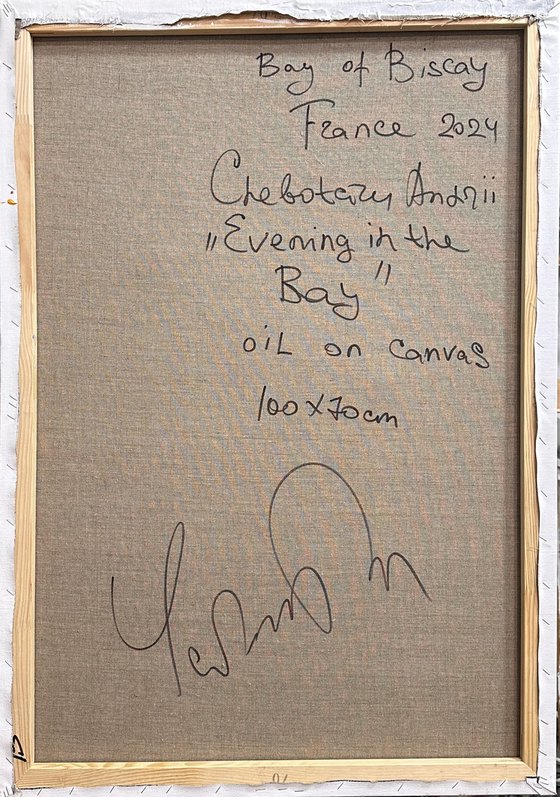 Bay of Biscay
France 2024
Chebotaru Andrii
„Evening in the
Bay"
oil on canvas
100x70cm